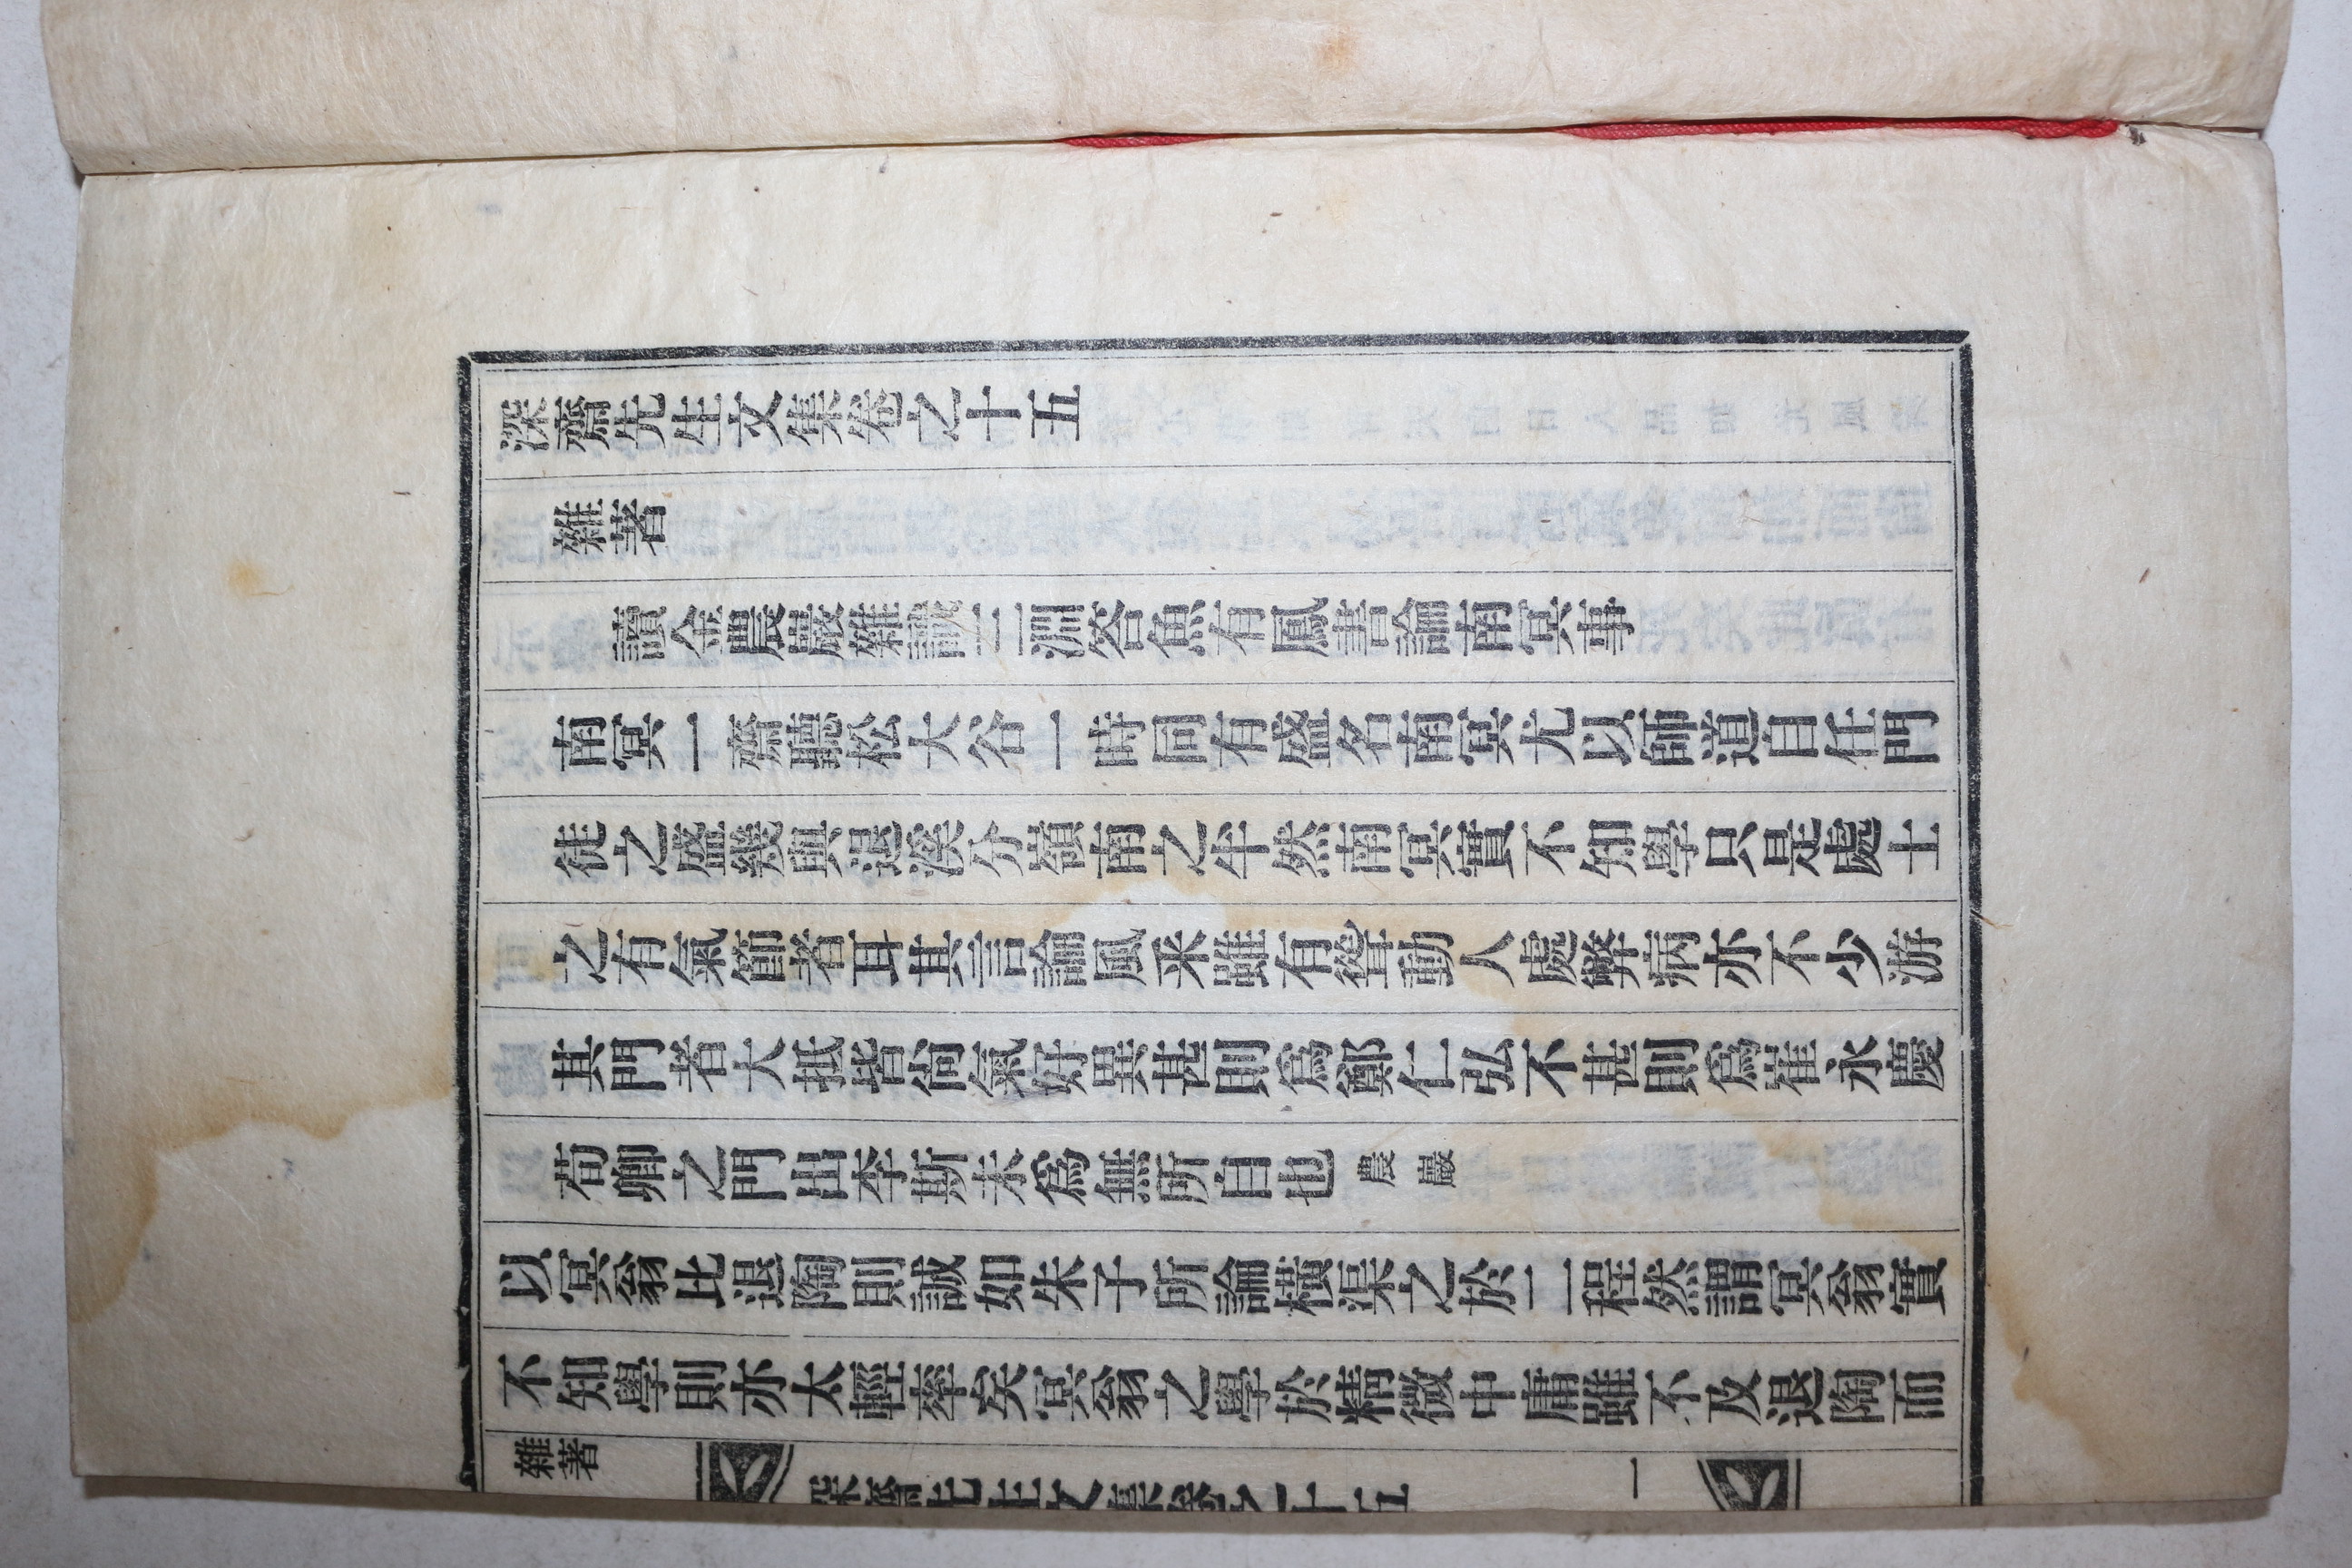 深齋先生文集卷之十五
雜著
讀金農巖雜識三淵答魚有鳳書論南冥事
南冥一齋聽松大谷一時同有盛名南冥尤以師道自任門
徒之盛幾與退溪分嶺南之半然南冥實不知學只是處士
之有氣節者耳其言論風采雖有聳動人處弊病亦不少游
其門者大抵皆尙氣好異甚則爲鄭仁弘不甚則爲崔永慶
荀卿之門出李斯未爲無所自也農巖
以冥翁比退陶則誠如朱子所論橫渠之於二程然謂冥翁實
不知學則亦太輕率矣冥翁之學於精微中庸雖不及退陶而
雜著
深齋先生文集卷之十五
一